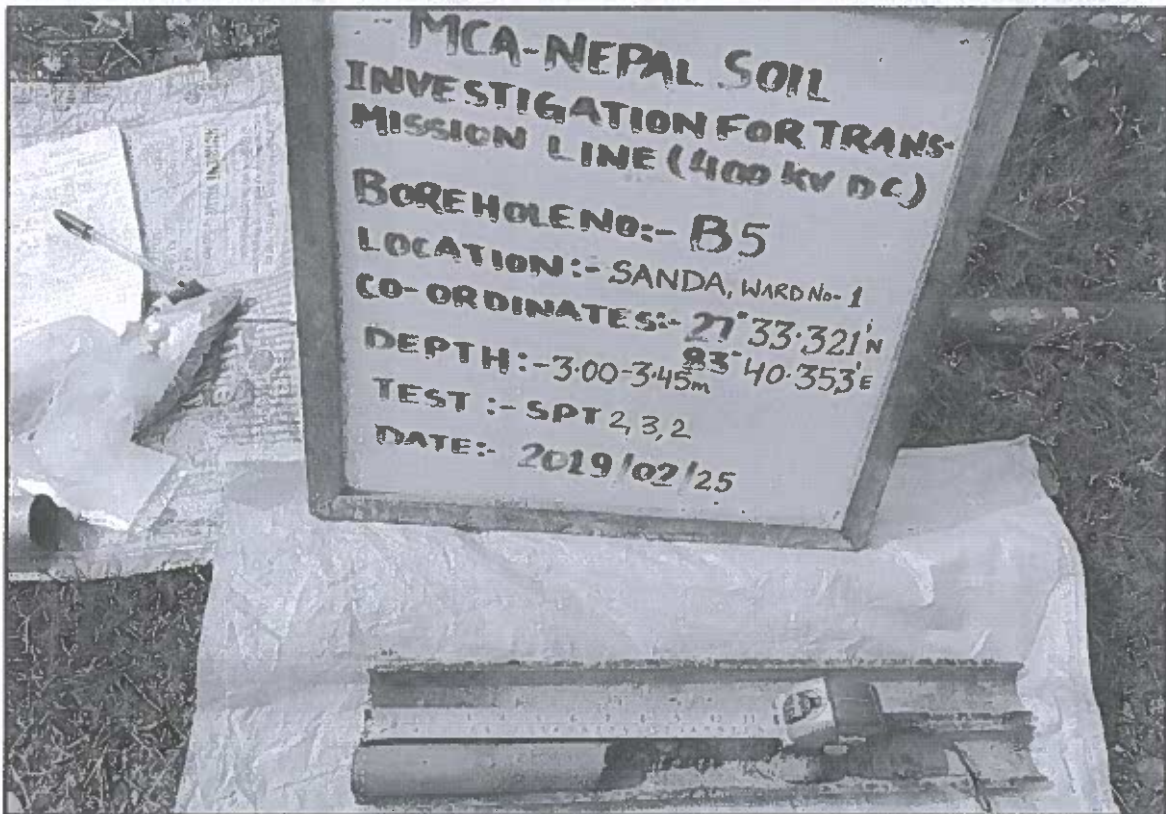 - MCA-NEPAL SOIL
INVESTIGATION FOR TRANS-
MISSION LINE (400 KV DC)
BOREHOLE NO:- B5
LOCATION:- SANDA, WARD No- 1
CO-ORDINATES:- 27°33.321'N
83°40.353'E
DEPTH:-3.00-3.45m
TEST :- SPT 2, 3, 2
DATE:- 2019/02/25